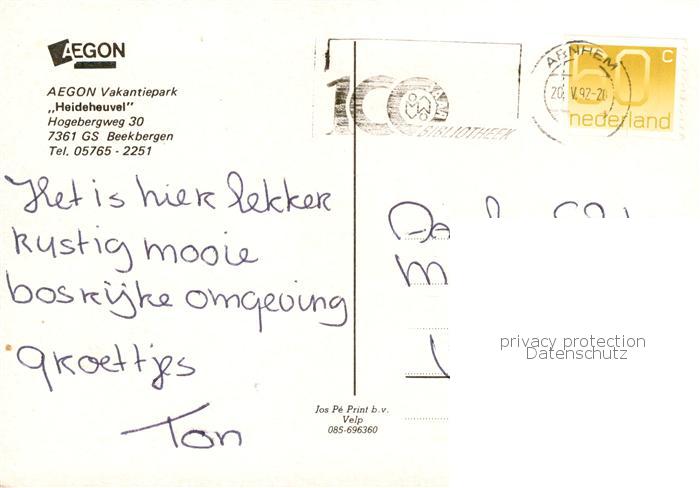 AEGON
AEGON Vakantiepark
„Heideheuvel"
Hogebergweg 30
7361 GS Beekbergen
Tel. 05765 - 2251
100 JAAR
BIBLIOTHEEK
ARNHEM
20. V.92-20
60 C
nederland
Het is hier lekker
rustig mooie
bosrijke omgeving
groettjes
Ton
privacy protection
Datenschutz
Jos Pé Print b.v.
Velp
085-696360